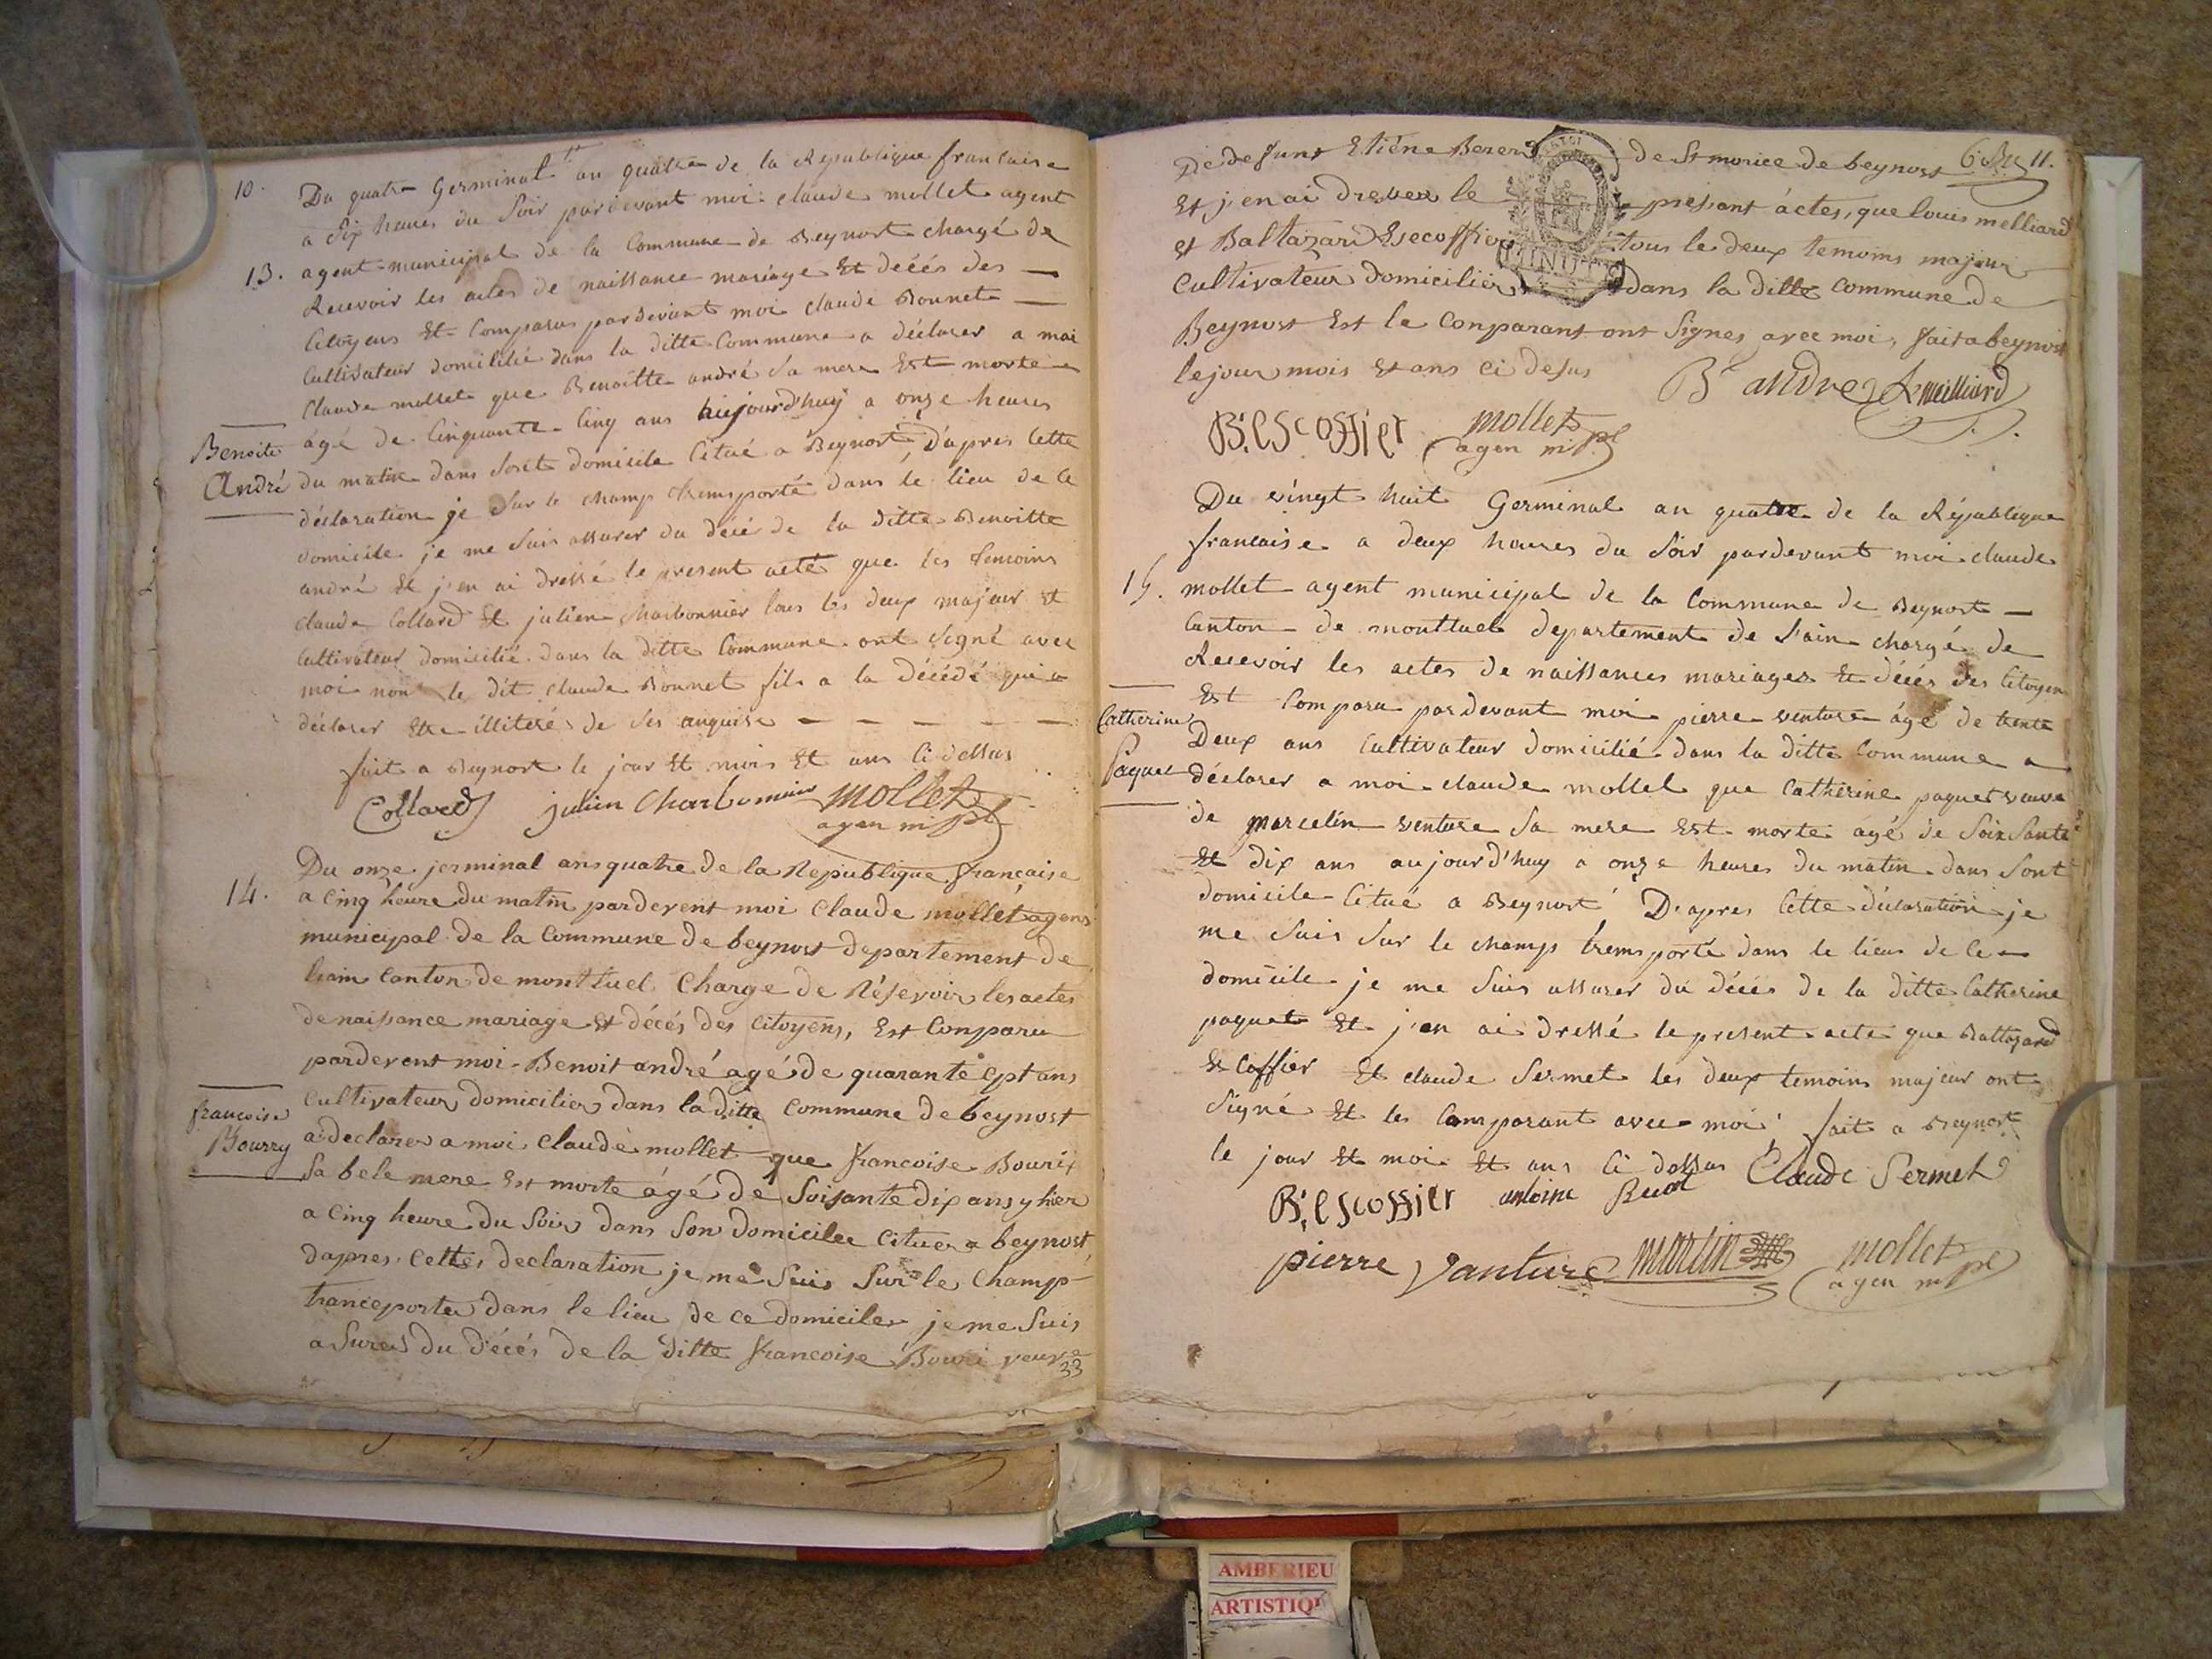 10.
Du quatre Germinal an quatre de la Republique francaise
a Six heures du Soir pardevant moi claude mollet agent
13. agent municipal de la Commune de Beynost chargé de
Recevoir les actes de naissance mariage Et décés des —
Citoyens Et Comparus pardevant moi claude Bonnet —
Cultivateur domicilié dans la ditte Commune a déclarer a moi
Claude mollet que Benoitte andré Sa mere Est morte
Benoite
André
âgé de Cinquante Cinq ans aujourd'huy a onze heures
du matin dans Sont domicile Citué a Beynost, D'apres Cette
déclaration je Sur le champ transporté dans le lieu de Ce
domicile je me Suis assurer du décé de la ditte Benoitte
andré Et j'en ai dressé le present acte que les temoins
claude Collard Et julien Charbonnier tous les deux majeur et
Cultivateur domicilié dans la ditte Commune ont Signé avec
moi non le dit claude Bonnet fils a la décédé qui a
déclarer Etre illiteré de Ses enquise — — — — —
fait a Beynost le jour Et mois Et ans Ci dessus
Collard julien Charbonnier mollet
agen mpl
14.
Du onze jerminal ans quatre de la Republique francaise
a Cinq heure du matin pardevent moi Claude mollet agent
municipal de la Commune de beynost departement de
lain Canton de montluel Charge de Résevoir les actes
de naissance mariage Et décés des Citoyens, Est Conparu
pardevent moi Benoit andré agé de quarante cept ans
francoise
Bourry
Cultivateur domicilier dans la ditte Commune de beynost
a declarer a moi Claude mollet que francoise Bourix
Sa bele mere Est morte ágé de Soisante dix ans y hier
a Cinq heure du Soir dans Son domicilee Cituer a beynost,
dapres Cette declaration je me Suis Sur le Champ
tranceporter dans le lieu de ce domicile je me Suis
a Surer du décés de la ditte francoise Bouri veuve
33
6 11.
De defunt Etiéne de St morice de beynost
Et j'en ai dresser le présant áctes, que louis melliard
et Baltazard Esecoffier tous le deux temoins majeur
MINUTE
Cultivateur domicilier dans la ditte Commune de
Beynost Est le Conparant ont Signes avec moi, fait a beynost
le jour mois Et ans Ci desus
B andre L melliard
B. escossier mollet
agen mpl
Du vingt huit Germinal an quatre de la République
francaise a deux heures du Soir pardevant moi claude
15. mollet agent municipal de la Commune de Beynost —
Canton de montluel departement de l'ain chargé de
Recevoir les actes de naissances mariages Et décés des Citoyen
Est Comparu pardevant moi pierre venture agé de trente
Catherine
Paquet
Deux ans Cultivateur domicilié dans la ditte Commune a
déclarer a moi claude mollet que Catherine paquet veuve
de marcelin venture Sa mere Est morte agé de Soixsante
Et dix ans aujourd'huy a onze heures du matin dans Sont
domicile Citué a Beynost D'apres Cette déclaration je
me Suis Sur le champ transporté dans le lieus de Ce —
domicile je me Suis assurer du décés de la ditte Catherine
paquet Et j'en ai dressé le present acte que Baltazard
Es Coffier Et claude Sermet les deux temoins majeur ont
Signé Et les Comparant avec moi fait a Beynost
le jour Et moi Et ans Ci dessus Claude Sermet
B. escossier antoine
pierre vanture martin mollet
agen mpl
AMBERIEU
ARTISTIQU